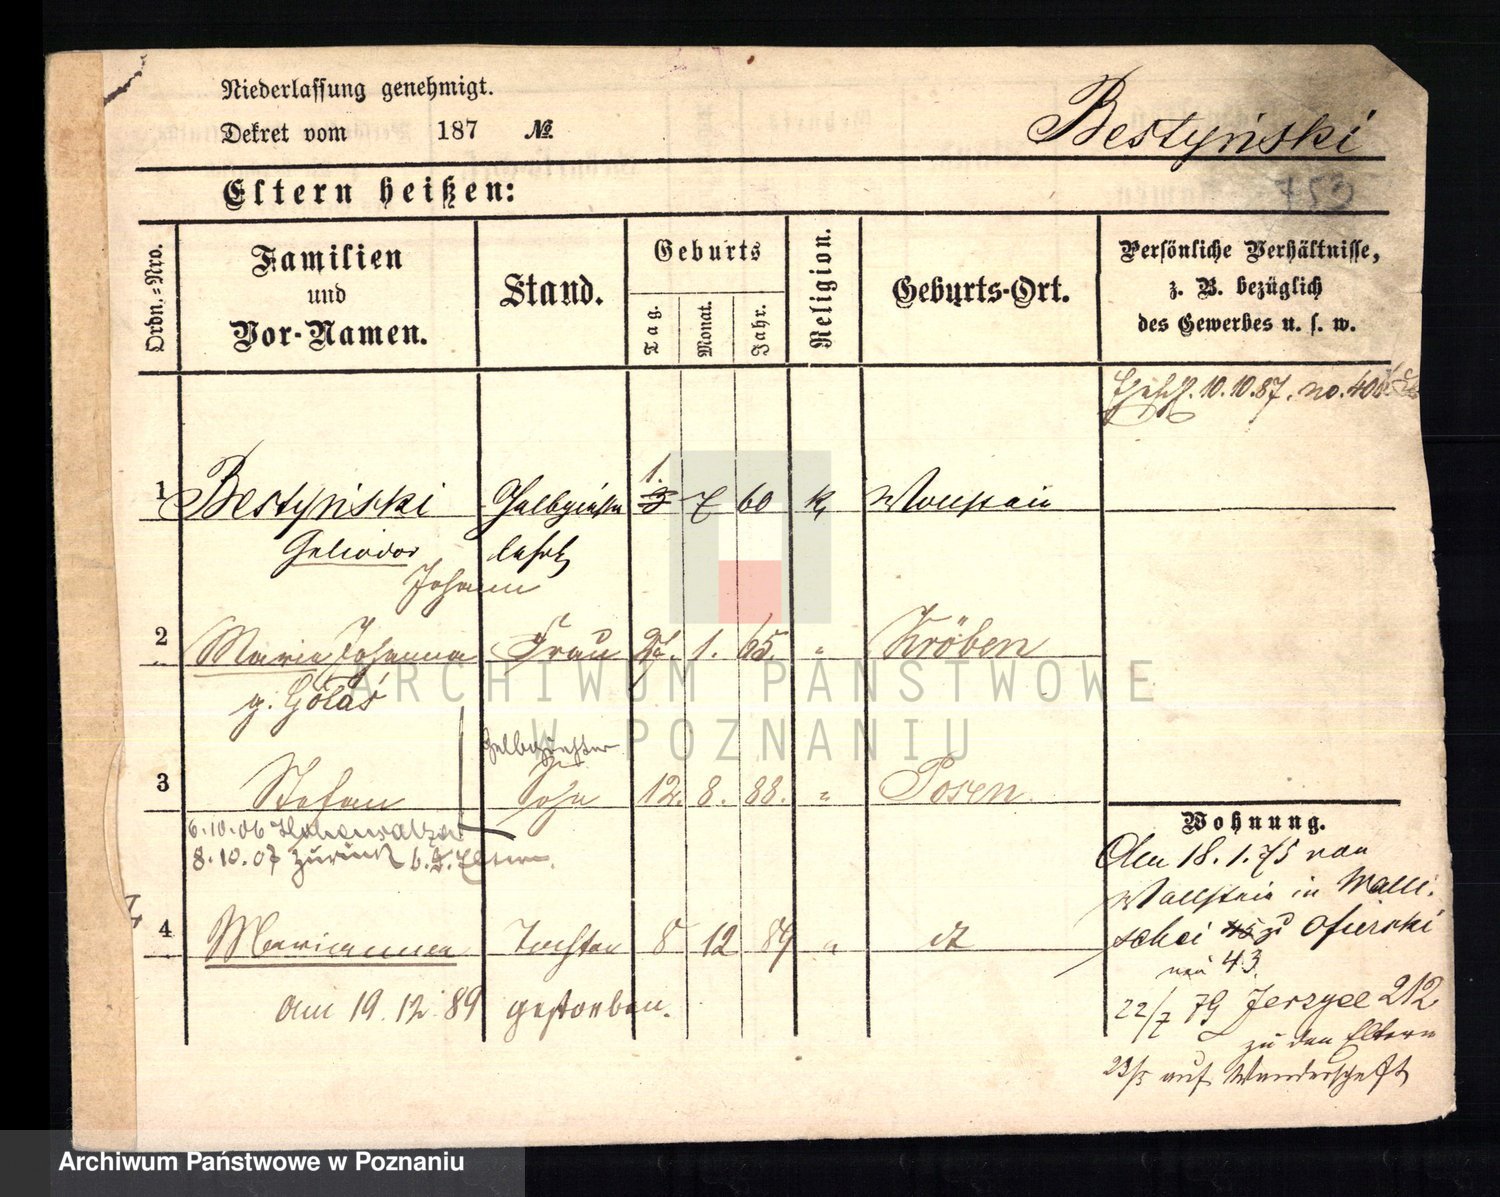 Niederlassung genehmigt.
Dekret vom 187 №
Bestyński
753
Eltern heißen:
Ordn.-Nro.
Familien
und
Vor-Namen.
Stand.
Geburts
Tag.
Monat.
Jahr.
Religion.
Geburts-Ort.
Persönliche Verhältnisse,
z. B. bezüglich
des Gewerbes u. s. w.
10.10.87. no.
1 Bestyński Gelbgießer 1. 3 7 60 k. Wollstein
Heliodor lehrl
Johann
2 Maria Johanna Frau 27. 1. 65. " Kröben
g. Golaś
Gelbgießer
3 Stefan Sohn 12. 8. 88. " Posen.
6.10.06 Hohensalza
8.10.07 zurück b. d. Eltern.
4 Marianna Tochter 8 12 89 " dt
am 19.12.89 gestorben.
Wohnung.
Am 18.1.75 von
Wollstein in Walli-
schei 45 zu Ofierski
neu 43.
22/7 79 Jerzyce 212
zu den Eltern
23/5 auf Wanderschaft
ARCHIWUM PAŃSTWOWE
W POZNANIU
Archiwum Państwowe w Poznaniu